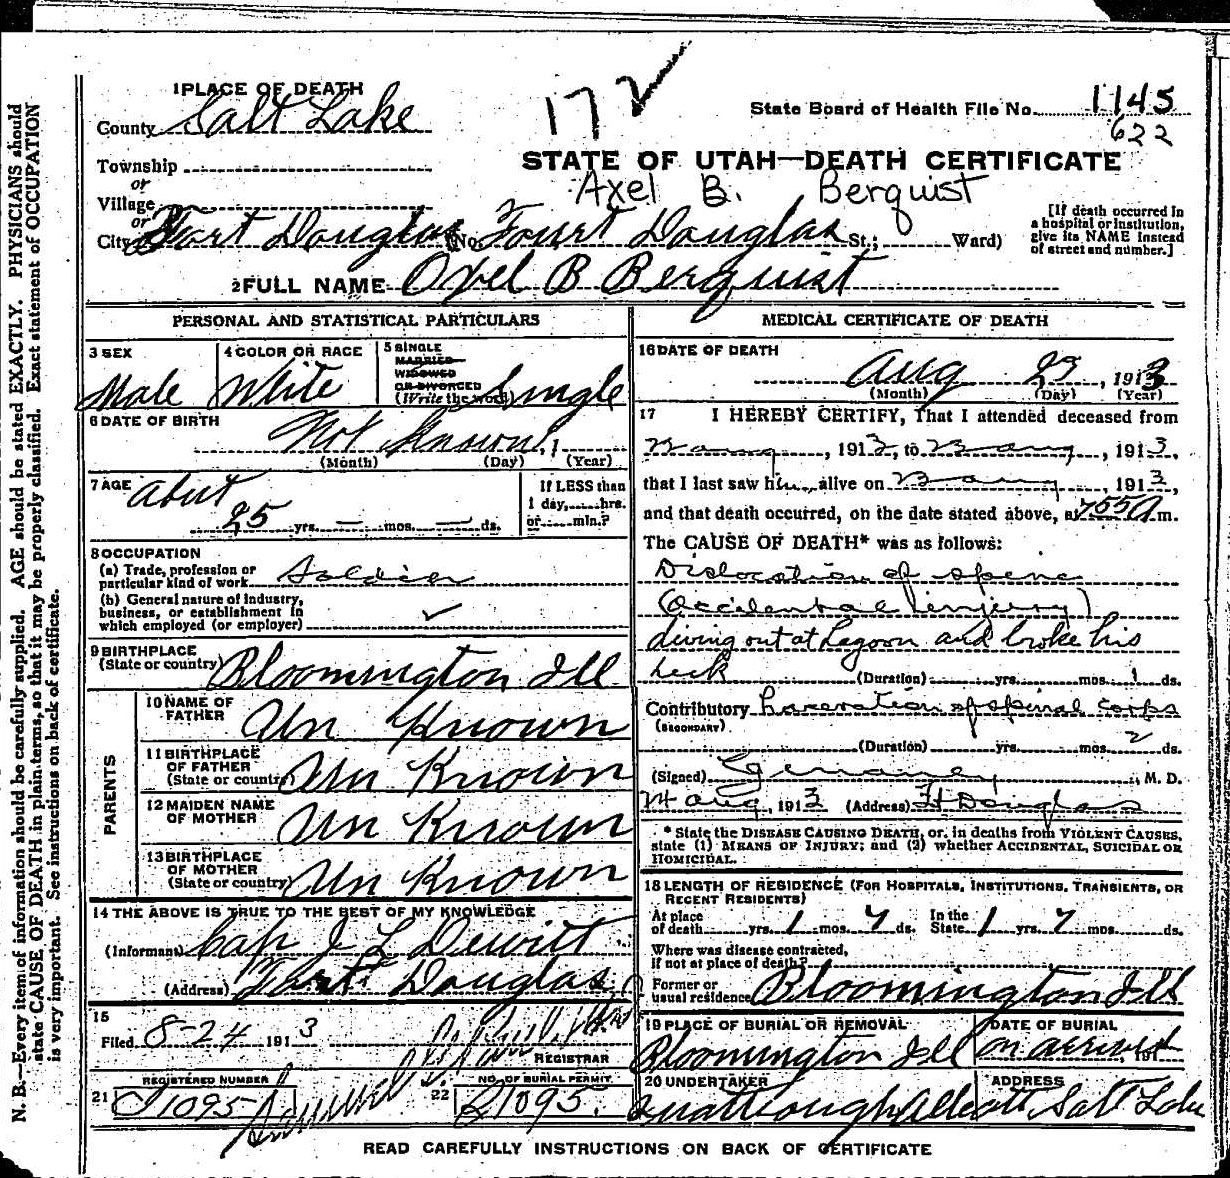 172✓
1145
622
1 PLACE OF DEATH
State Board of Health File No.
County Salt Lake
STATE OF UTAH—DEATH CERTIFICATE
Township
or
Village
or
Axel B. Berquist
City Fort Douglas (No. Fourt Douglas St.; Ward)
[If death occurred in a hospital or institution, give its NAME instead of street and number.]
2 FULL NAME Oxel B Berquist
PERSONAL AND STATISTICAL PARTICULARS
3 SEX Male
4 COLOR OR RACE White
5 SINGLE MARRIED WIDOWED OR DIVORCED (Write the word) Single
6 DATE OF BIRTH Not Known, 1
(Month) (Day) (Year)
7 AGE About 25 yrs. — mos. — ds.
If LESS than 1 day, hrs. or min.?
8 OCCUPATION
(a) Trade, profession or particular kind of work Soldier
(b) General nature of industry, business, or establishment in which employed (or employer) ✓
9 BIRTHPLACE (State or country) Bloomington Ill
PARENTS
10 NAME OF FATHER Un Known
11 BIRTHPLACE OF FATHER (State or country) Un Known
12 MAIDEN NAME OF MOTHER Un Known
13 BIRTHPLACE OF MOTHER (State or country) Un Known
14 THE ABOVE IS TRUE TO THE BEST OF MY KNOWLEDGE
(Informant) Cap J L Dewitt
(Address) Fort Douglas
15
Filed 8-24 1913
REGISTRAR
21 REGISTERED NUMBER 1095
22 NO. OF BURIAL PERMIT 1095
MEDICAL CERTIFICATE OF DEATH
16 DATE OF DEATH
Aug 23, 1913
(Month) (Day) (Year)
17 I HEREBY CERTIFY, That I attended deceased from
, 1913, to , 1913,
that I last saw him alive on , 1913,
and that death occurred, on the date stated above, at 755 A m.
The CAUSE OF DEATH* was as follows:
Dislocation of spine
(Accidental injury)
diving out at Lagoon and broke his
neck (Duration) yrs. mos. 1 ds.
Contributory Laceration of spinal corps
(SECONDARY)
(Duration) yrs. mos. 2 ds.
(Signed) , M. D.
24 Aug, 1913 (Address) Ft Douglas
* State the DISEASE CAUSING DEATH, or, in deaths from VIOLENT CAUSES, state (1) MEANS OF INJURY; and (2) whether ACCIDENTAL, SUICIDAL OR HOMICIDAL.
18 LENGTH OF RESIDENCE (FOR HOSPITALS, INSTITUTIONS, TRANSIENTS, OR RECENT RESIDENTS)
At place of death yrs. 1 mos. 7 ds. In the State 1 yrs. 7 mos. ds.
Where was disease contracted, if not at place of death?
Former or usual residence Bloomington Ill
19 PLACE OF BURIAL OR REMOVAL Bloomington Ill
DATE OF BURIAL on arrival, 191
20 UNDERTAKER
ADDRESS Salt Lake
READ CAREFULLY INSTRUCTIONS ON BACK OF CERTIFICATE
N. B.—Every item of information should be carefully supplied. AGE should be stated EXACTLY. PHYSICIANS should
state CAUSE OF DEATH in plain terms, so that it may be properly classified. Exact statement of OCCUPATION
is very important. See instructions on back of certificate.